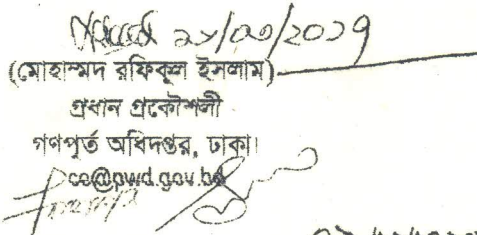 ২৮/০৩/২০১৭
(মোহাম্মদ রফিকুল ইসলাম)
প্রধান প্রকৌশলী
গণপূর্ত অধিদপ্তর, ঢাকা।
ce@pwd.gov.bd